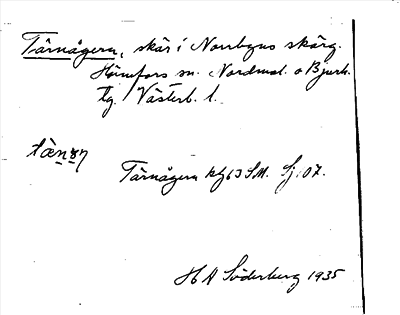 Tärnögern, skär i Norrbyns skärg.
Hörnefors sn. Nordmal. o Bjurh.
tg. Västerb. l.
Tärnögern kbl 63 SM. Sj: 07.
H A Söderberg 1935